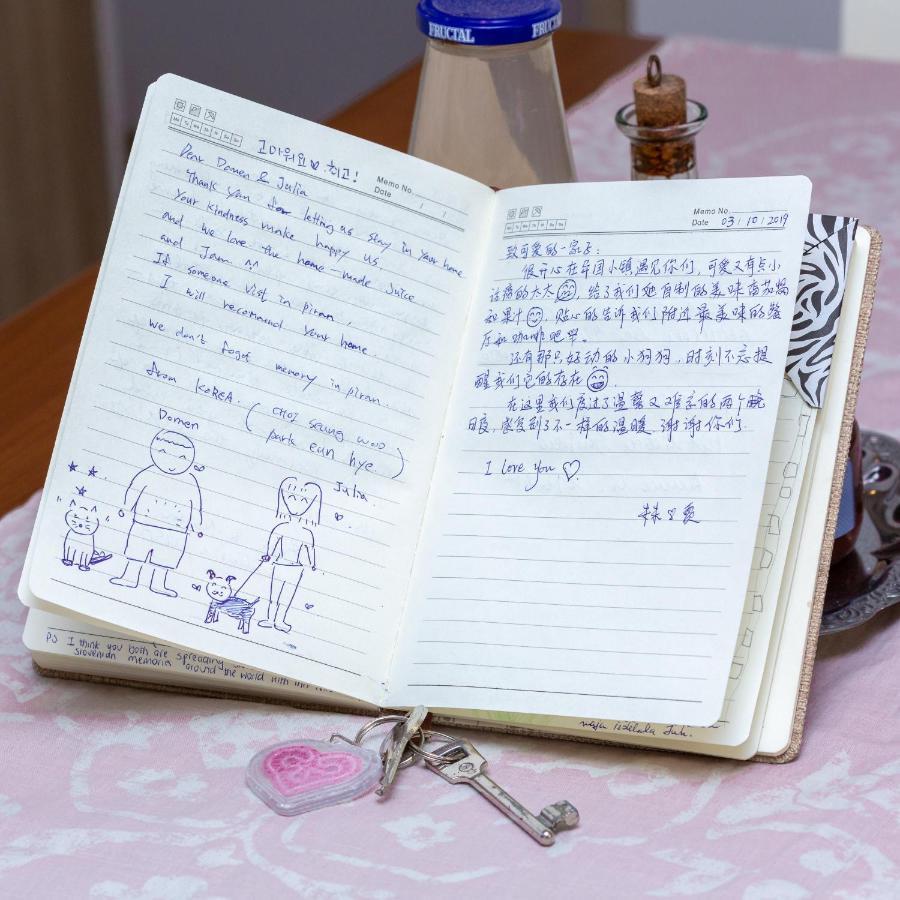 FRUCTAL
FRUCTAL
고마워요♡. 최고!
Memo No.
Date / /
Dear Domen & Julia
Thank you for letting us stay in your home
your kindness make happy us
and we love the home-made juice
and Jam ^^
If someone visit in piran,
I will recomand your home.
we don't foget
memory in piran
from KOREA. ( CHOI seung woo
park eun hye )
Domen
Julia
PS I think you both are spreading
slovenian memories around the world with this
Memo No.
Date 03/10/2019
致可爱的一家子:
很开心在异国小镇遇见你们, 可爱又有点小
话痨的太太, 给了我们她自制的美味
和果汁, 贴心的告诉我们附近最美味的餐
厅和咖啡吧
还有那只好动的小狗狗, 时刻不忘提
醒我们它的存在
在这里我们度过了温馨又难忘的两个晚
感受到了不一样的温暖 谢谢你们.
I love you ♡.